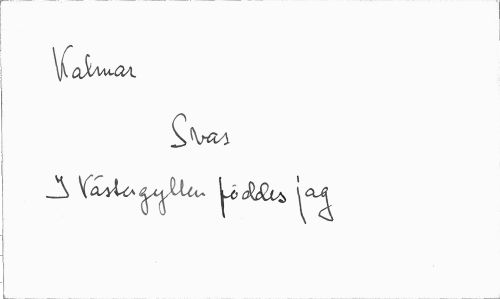 Kalmar
Svar
I Västergyllen föddes jag